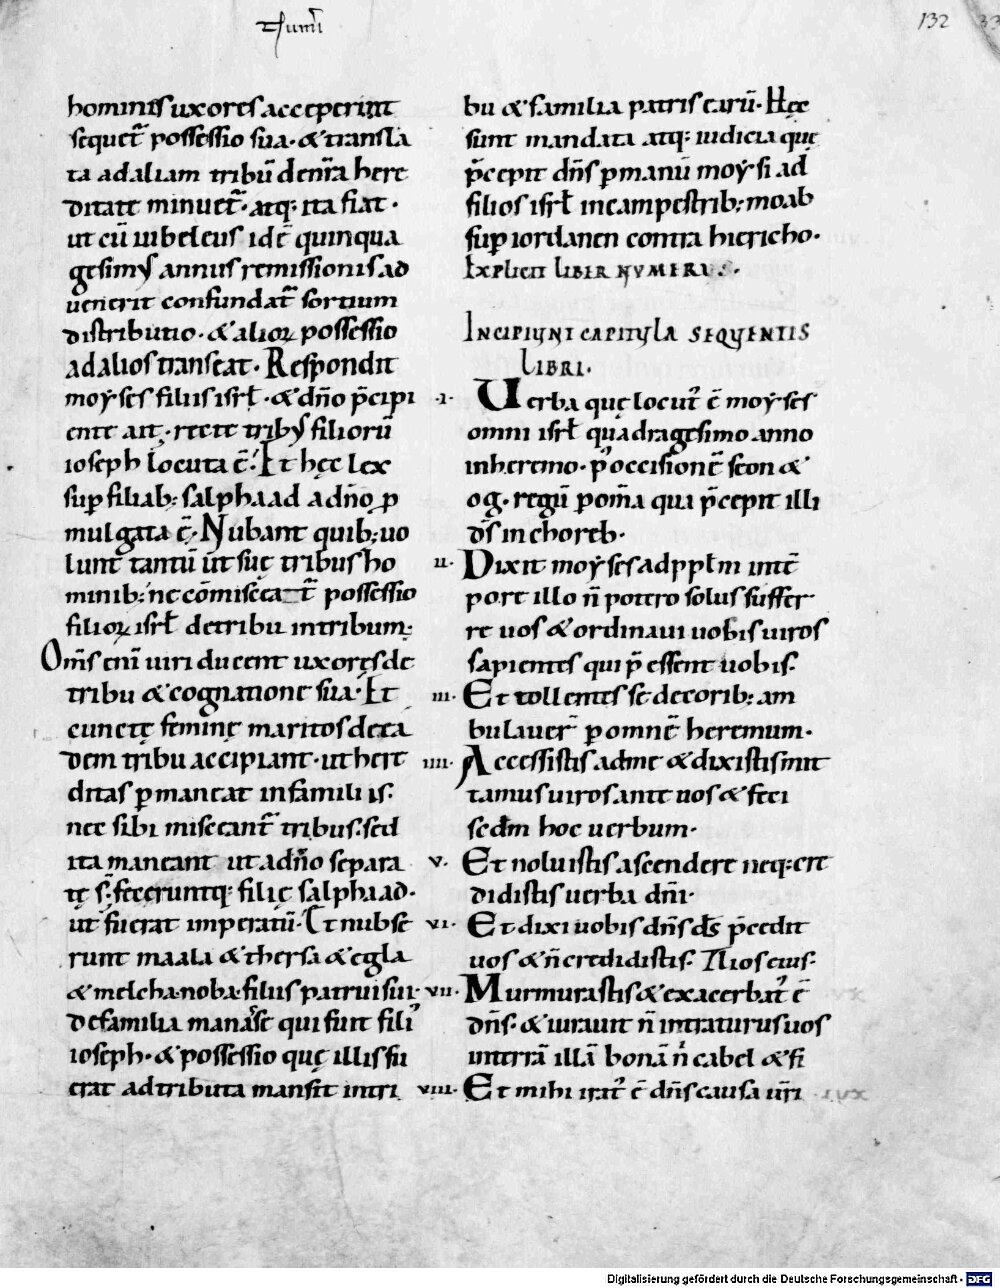 132 33
hominis uxores acceperint
sequet̄ possessio sua · & transla
ta ad aliam tribū de nr̄a here
ditate minuet̄ · atq: ita fiat ·
ut cū iubeleus id ē quinqua
gesimus annus remissionis ad
uenerit confundat̄ sortium
distributio · & alioꝝ possessio
ad alios transeat · Respondit
moyses filiis isrł · & dn̄o p̄cipi
ente ait · recte tribus filiorū
ioseph locuta ē · Et hęc lex
sup̄ filiab: salphaad a dn̄o p̄
mulgata ē · Nubant quib: uo
lunt tantū ut suę tribus ho
minib: ne cōmisceat̄ possessio
filioꝝ isrł de tribu in tribum ;
Om̄s enī uiri ducent uxores de
tribu & cognatione sua · Et
cunctę feminę maritos de ea
dem tribu accipiant · ut here
ditas p̄maneat in familiis ·
nec sibi misceant̄ tribus · sed
ita maneant ut a dn̄o separa
tę s̄ · feceruntq: filię salphaad ·
ut fuerat imperatū · Et nubse
runt maala & thersa & egla
& melcha · noba · filiis patrui sui ·
de familia manasse qui fuit filiꝰ
ioseph · & possessio quę illis fu
erat ad tributa mansit in tri
bu & familia patris earū · Hęc
sunt mandata atq: iudicia quę
p̄cepit dn̄s p̄ manū moysi ad
filios isrł in campestrib: moab
sup̄ iordanen contra hiericho ·
Explicit liber numerus ·
Incipiunt capitula sequentis
libri ·
·i· Uerba quę locutꝰ ē moyses
omni isrł quadragesimo anno
in heremo · p̄ occisionē seon &
og · regū p̄ om̄a qui p̄cepit illi
ds̄ in choreb ·
ii · Dixit moyses ad pplm̄ in tē
pore illo n̄ potero solus suffer
re uos & ordinaui uobis uiros
sapientes qui p̄ essent uobis ·
iii · Et tollentes se de coreb : am
bulauer̄ p̄ omnē heremum ·
iiii · Accessistis ad me & dixistis mit
tamus uiros ante nos & feci
sedm̄ hoc uerbum ·
v · Et noluistis ascendere neq: cre
didistis uerba dn̄i ·
vi · Et dixi uobis dn̄s ds̄ p̄cedit
uos & n̄ credidistis ·
vii · Murmurastis & exacerbatꝰ ē
dn̄s · & iurauit n̄ intraturus uos
in terrā illā bonā n̄ cabel & fi
viii · Et mihi iratꝰ ē dn̄s causa ur̄i
Digitalisierung gefördert durch die Deutsche Forschungsgemeinschaft · DFG